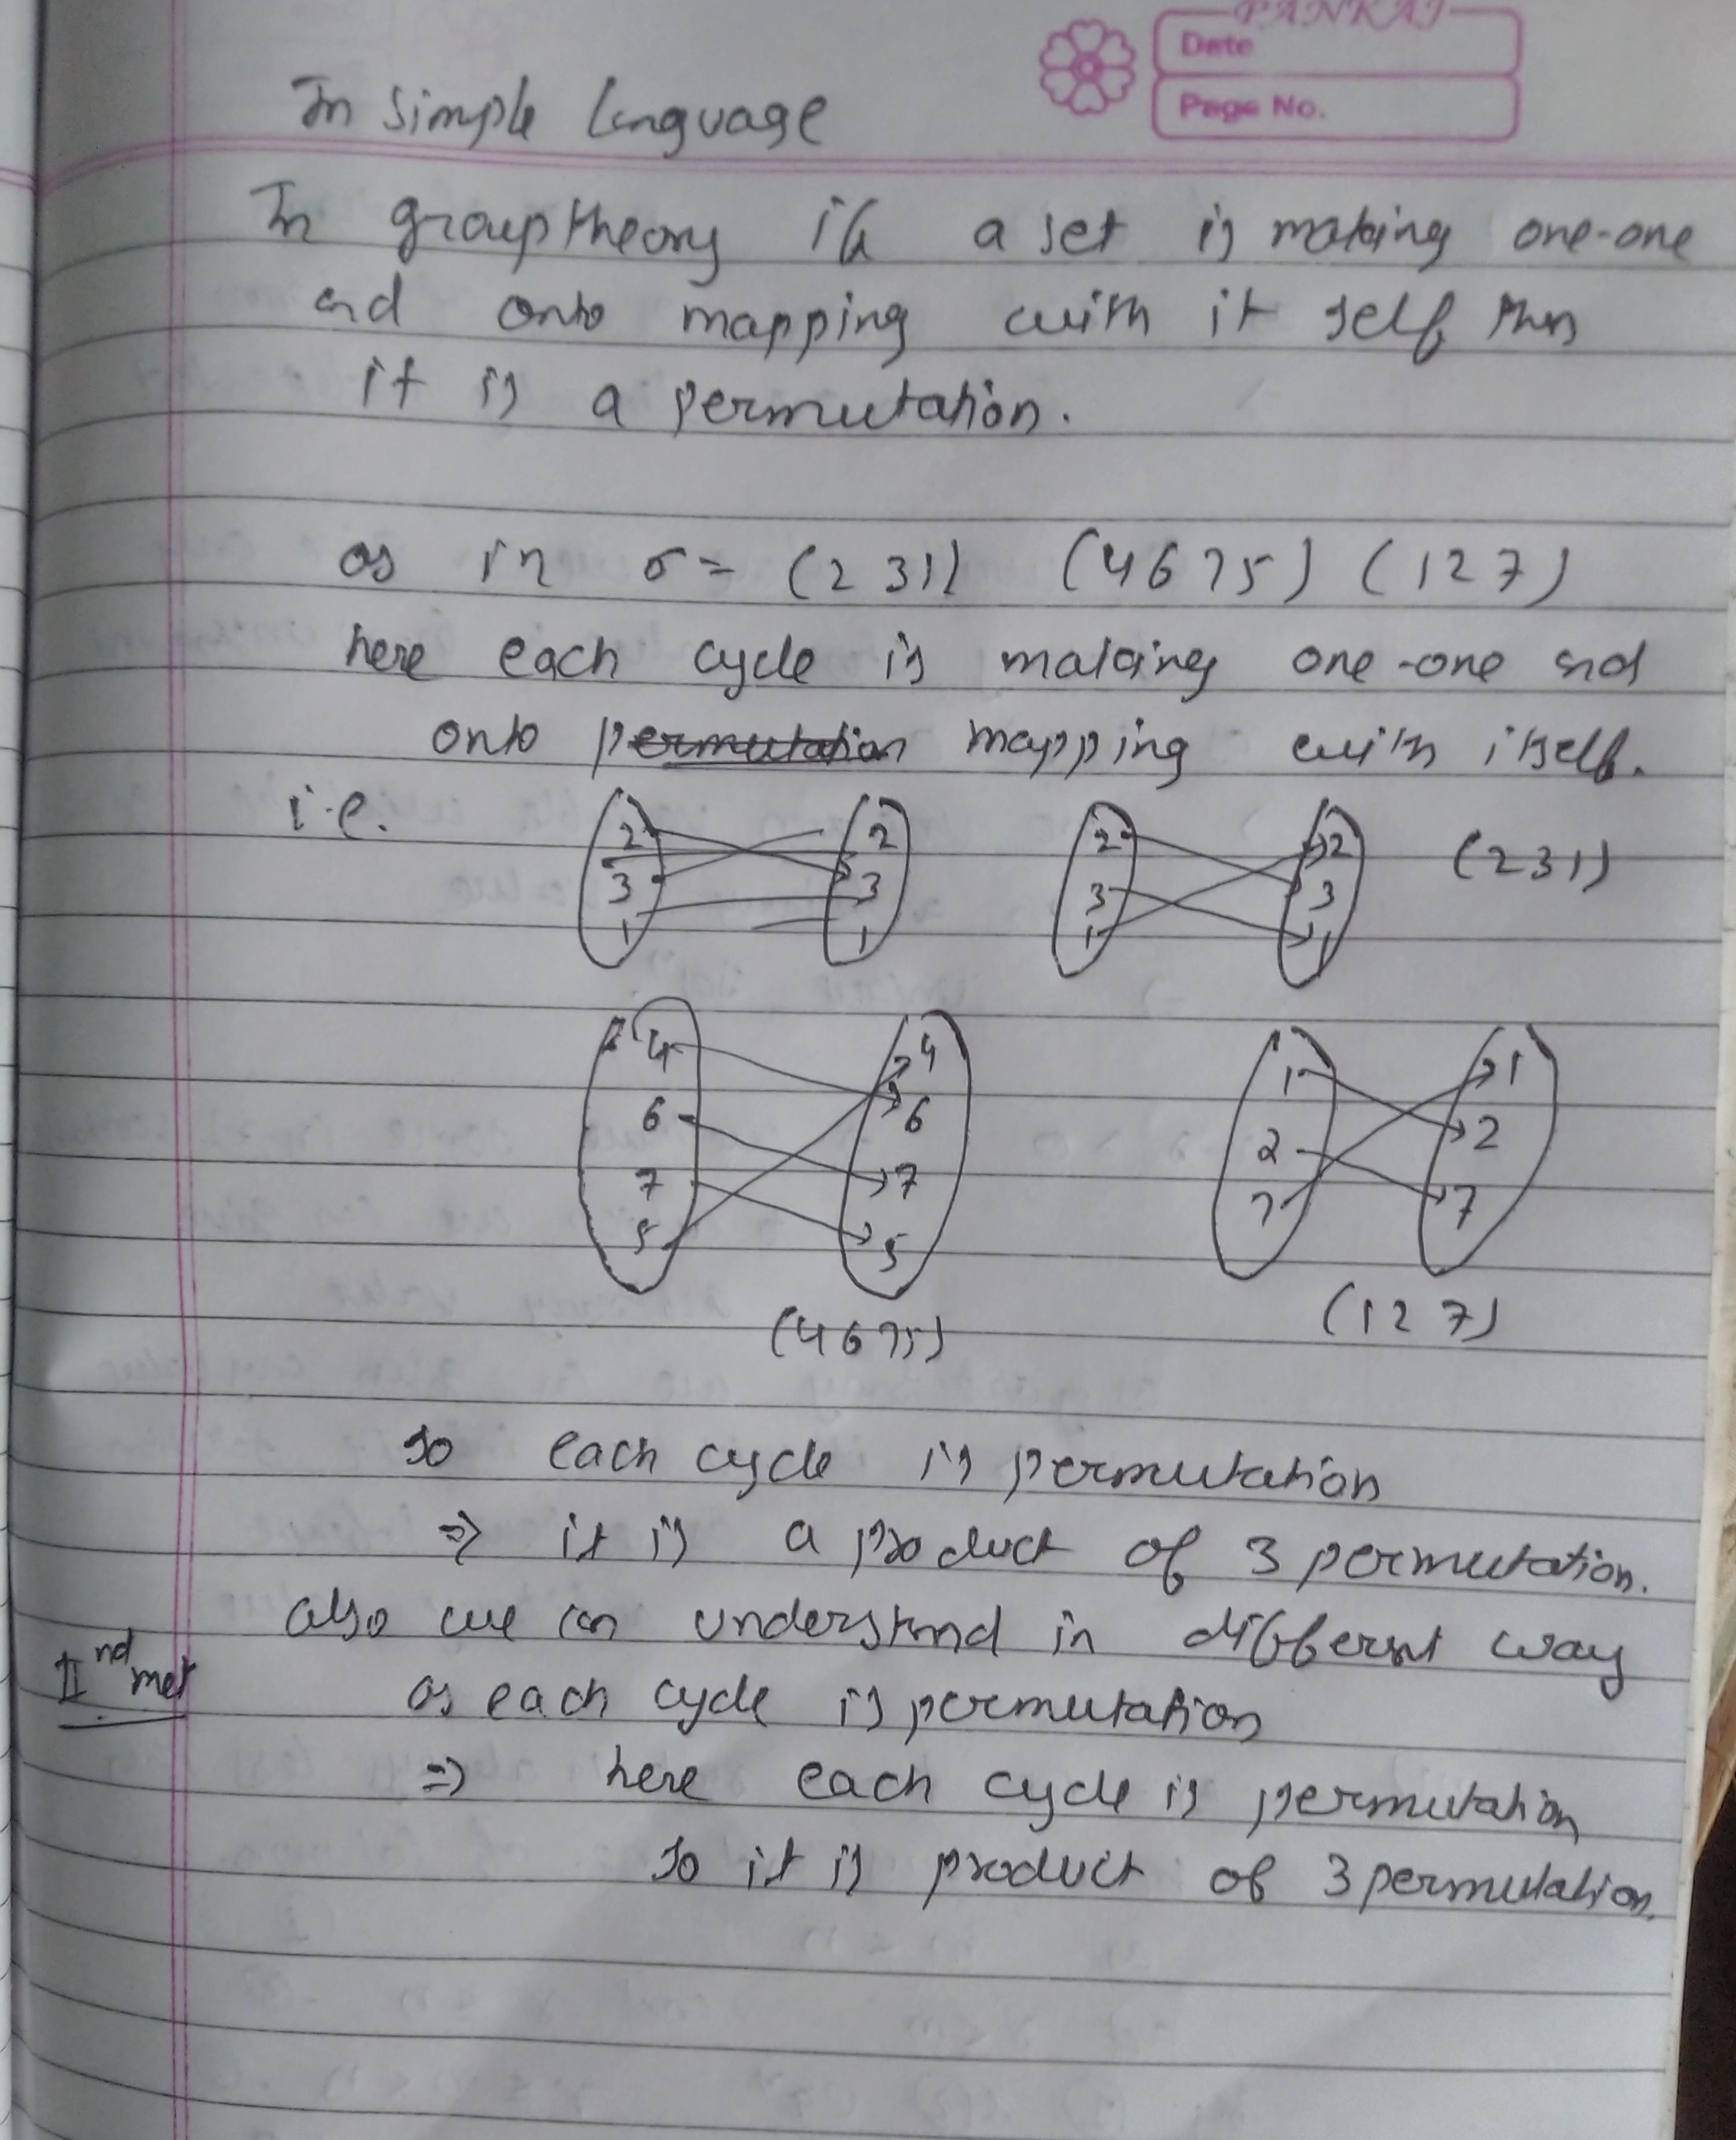 PANKAJ
Date
Page No.
In simple language
In group theory if a set is making one-one
and onto mapping with it self then
it is a permutation.
as in σ = (2 3 1) (4 6 7 5) (1 2 7)
here each cycle is making one-one and
onto permutation mapping with itself.
i.e.
2 2 2 2 (2 3 1)
3 3 3 3
1 1 1 1
4 4 1 1
6 6 2 2
7 7 7 7
5 5
(4 6 7 5) (1 2 7)
so each cycle is permutation
⇒ it is a product of 3 permutation.
also we can understand in different way
IInd met as each cycle is permutation
⇒ here each cycle is permutation
so it is product of 3 permutation.